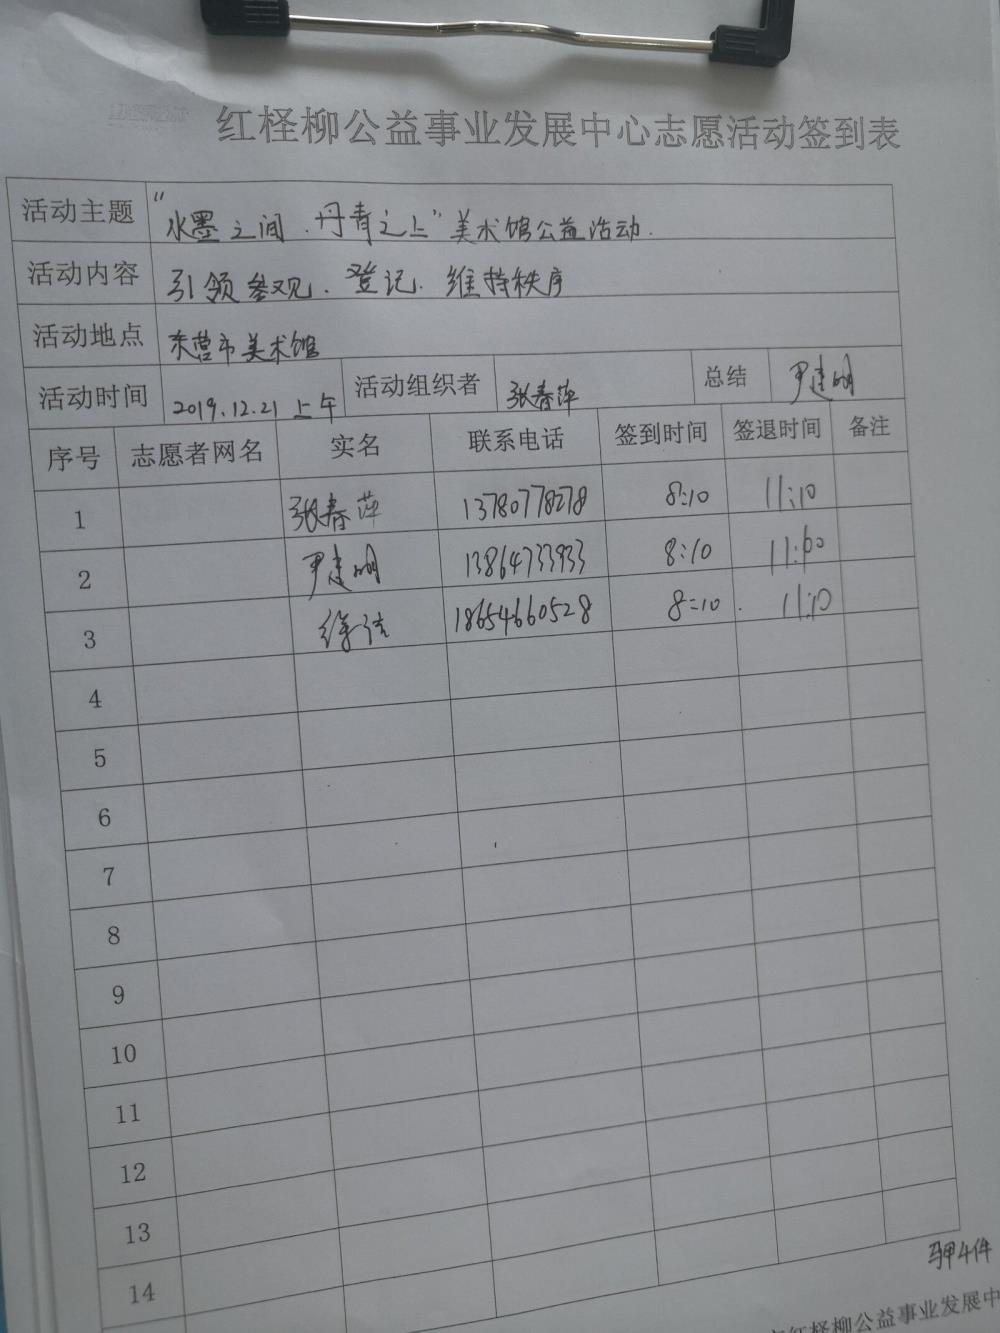 红柽柳公益事业发展中心志愿活动签到表
活动主题 "水墨之间.丹青之上"美术馆公益活动.
活动内容 引领参观.登记.维持秩序
活动地点 东营市美术馆
活动时间 2019.12.21 上午 活动组织者 张春萍 总结 尹建明
序号 志愿者网名 实名 联系电话 签到时间 签退时间 备注
1 张春萍 13780778278 8:10 11:10
2 尹建明 13864733933 8:10
3 徐洁 18654660528 8:10 11:10
4
5
6
7
8
9
10
11
12
13
14
马甲4件
红柽柳公益事业发展中